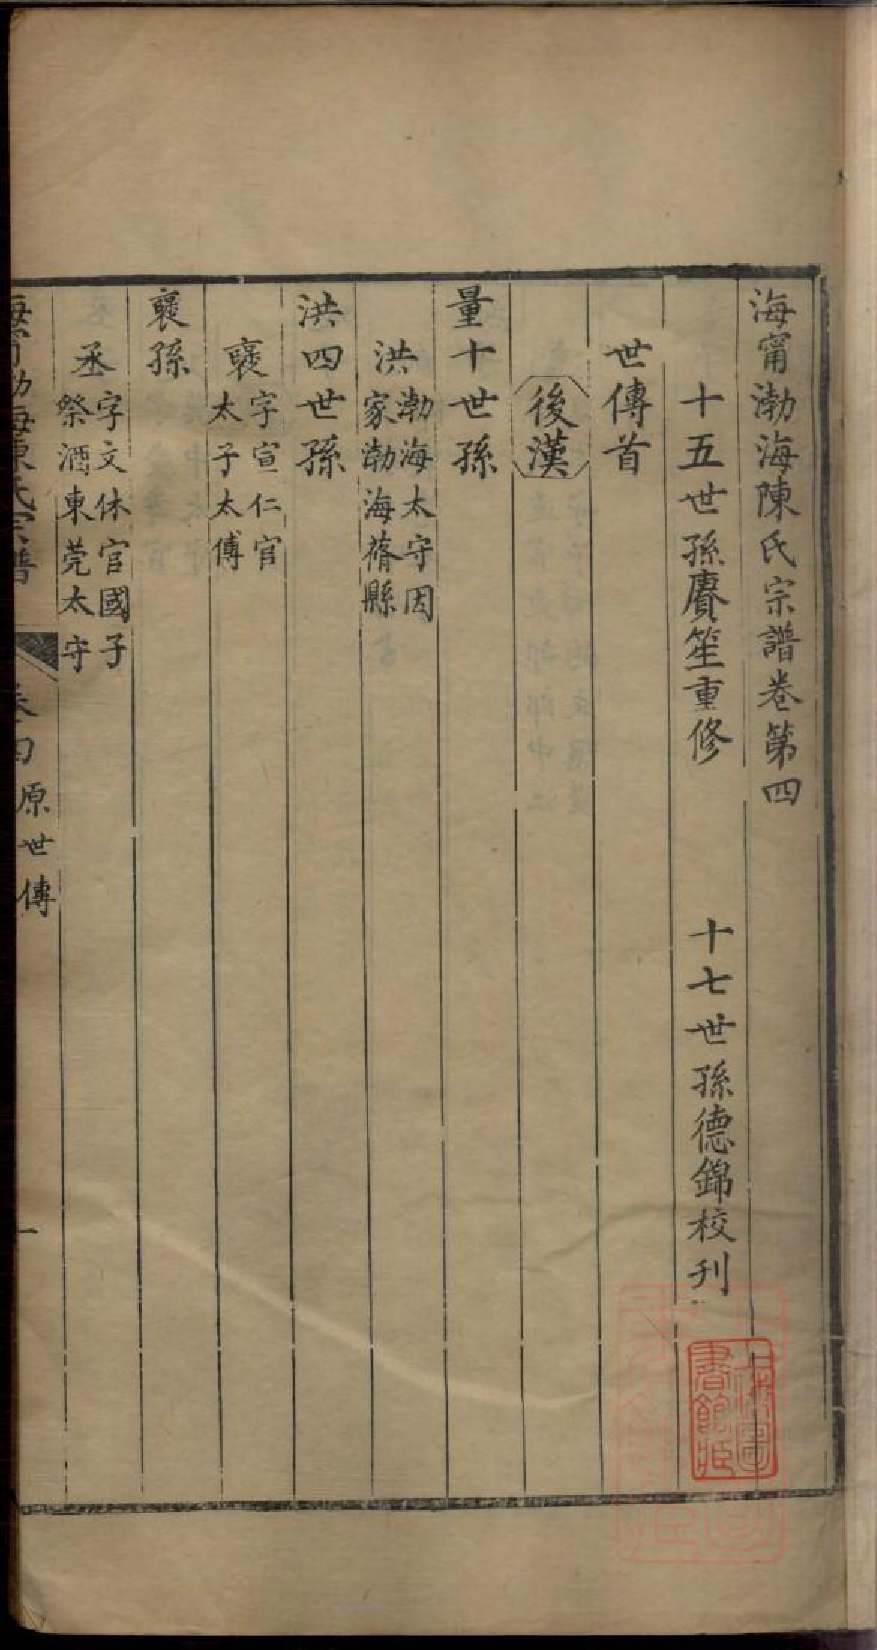 海甯渤海陳氏宗譜卷第四
十五世孫賡笙重修 十七世孫德錦校刊
世傳首
後漢
量十世孫
洪 渤海太守因
家渤海蓨縣
洪四世孫
襃 字宣仁官
太子太傅
襃孫
丞 字文休官國子
祭酒東莞太守
海甯渤海陳氏宗譜 卷四 原世傳 一